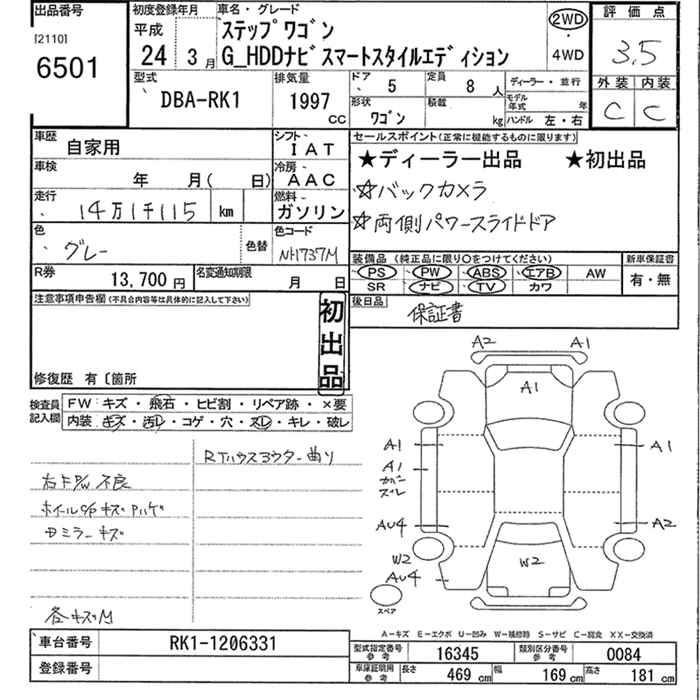 出品番号
[2110]
6501
初度登録年月
平成
24 3月
車名・グレード
ステップワゴン
G_HDDナビスマートスタイルエディション
2WD
・
4WD
評価点
3.5
外装 内装
C C
型式
DBA-RK1
排気量
1997
CC
ドア
5
定員
8人
形状
ワゴン
積載
kg
ディーラー・並行
モデル年式 年
ハンドル 左・右
車歴
自家用
シフト
IAT
車検
年 月( 日)
冷房
AAC
走行
14万1千115 km
燃料
ガソリン
色
グレー
色替
色コード
NH737M
R券
13,700円
名変通知期限
月 日
セールスポイント(正常に機能するものに限ります)
★ディーラー出品 ★初出品
☆バックカメラ
☆両側パワースライドドア
装備品(純正品に限り○をつけてください)
PS PW ABS エアB AW
SR ナビ TV カワ
新車保証書
有・無
後日品
保証書
注意事項申告欄(不具合内容等は具体的に記入して下さい)
初出品
修復歴 有〔箇所
検査員記入欄
FW キズ・飛石・ヒビ割・リペア跡・×要
内装 キズ・汚レ・コゲ・穴・スレ・キレ・破レ
右FP/W不良
ホイルC/Pキズ
ドミラーキズ
各キズM
A2 A1
A1
A1 A1
A1
カバーズレ
AU4 A2
W2 W2
AU4
スペア
A-キズ E-エクボ U-凹み W-補修跡 S-サビ C-腐食 XX-交換済
車台番号
RK1-1206331
登録番号
型式指定番号 参考
16345
類別区分番号 参考
0084
車庫証明用 参考
長さ 469 cm 幅 169 cm 高さ 181 cm